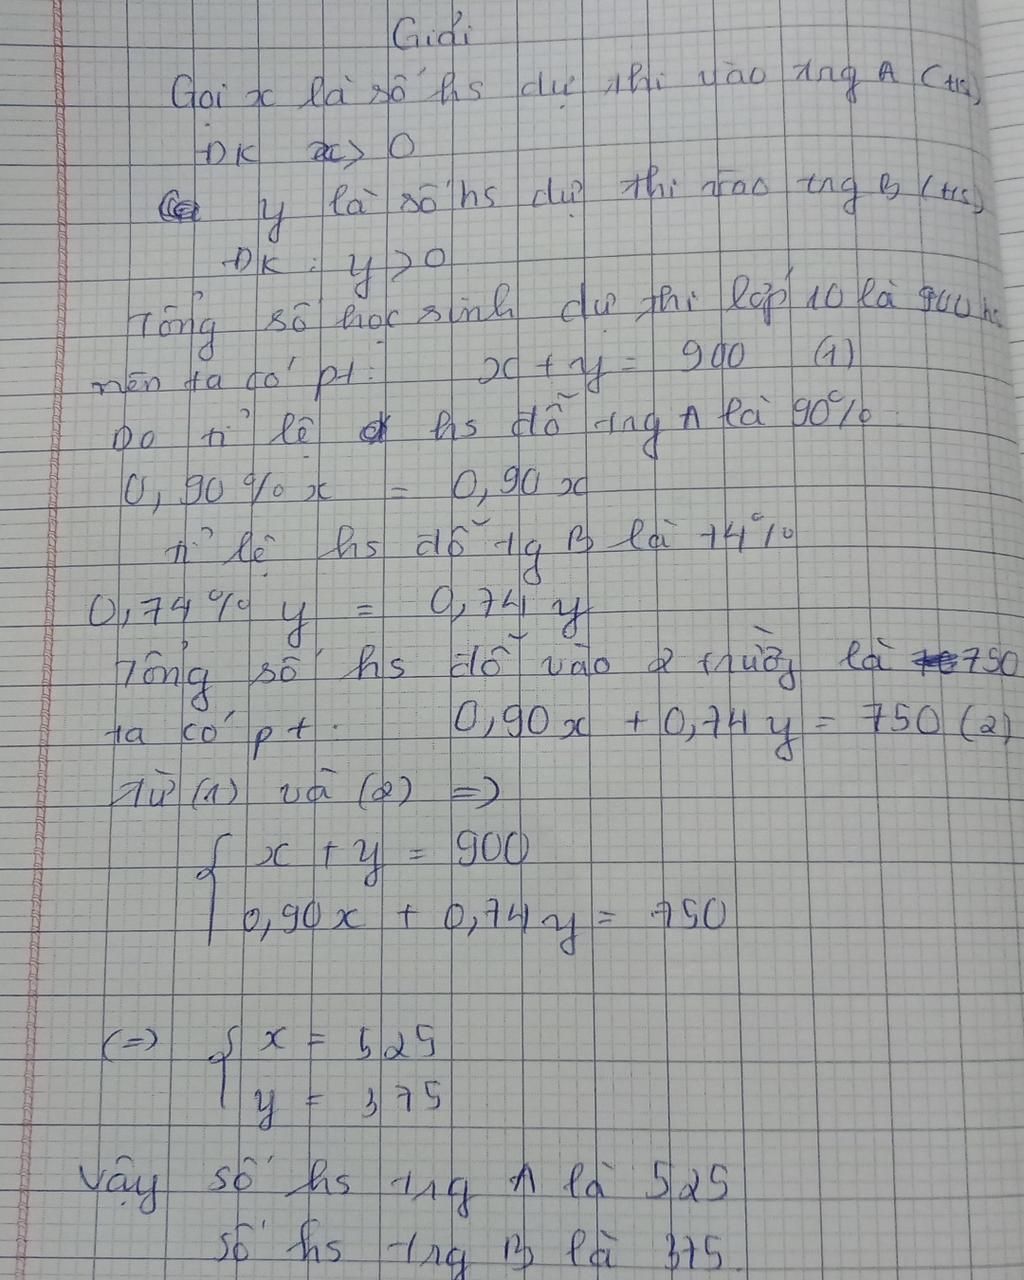 Giải
Gọi x là số hs dự thi vào trng A (hs)
ĐK x > 0
y là số hs dự thi vào trng B (hs)
ĐK : y > 0
Tổng số học sinh dự thi lớp 10 là 900 hs
nên ta có pt: x + y = 900 (1)
Do tỉ lệ hs đỗ trng A là 90%
0,90% x = 0,90 x
tỉ lệ hs đỗ tg B là 74%
0,74% y = 0,74 y
Tổng số hs đỗ vào 2 trường là 750
ta có pt: 0,90x + 0,74 y = 750 (2)
Từ (1) và (2) =>
{ x + y = 900
0,90x + 0,74 y = 750
(=) { x = 525
y = 375
Vậy số hs trng A là 525
số hs trng B là 375.